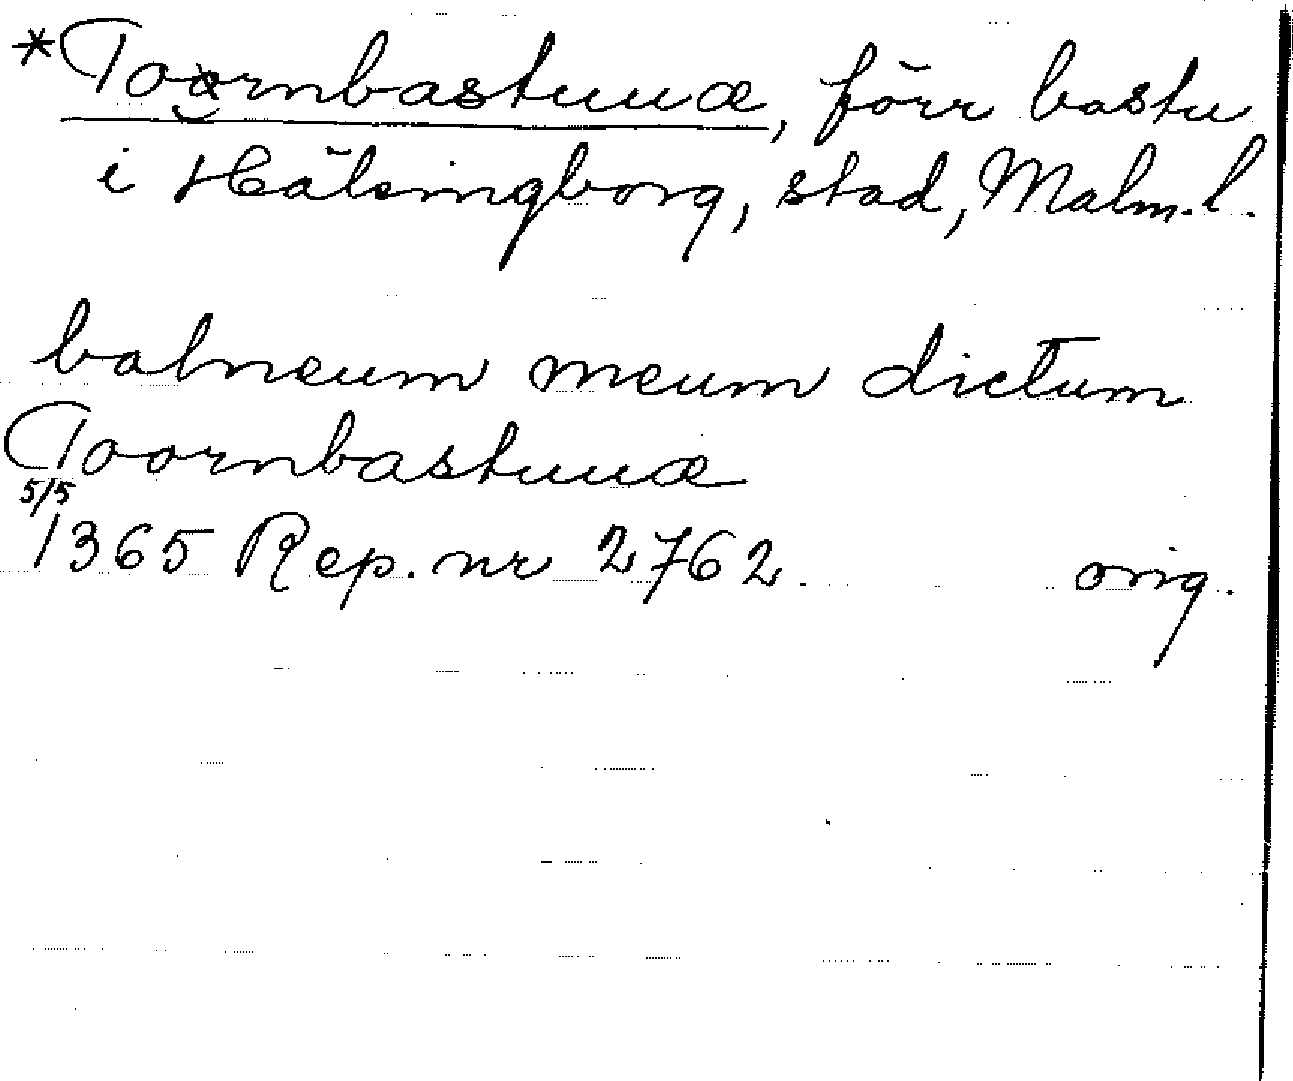 *Toornbastuuæ, förr bastu
i Hälsingborg, stad, Malm. l.
balneum meum dictum
Toornbastuuæ
5/5
1365 Rep. nr 2762. orig.